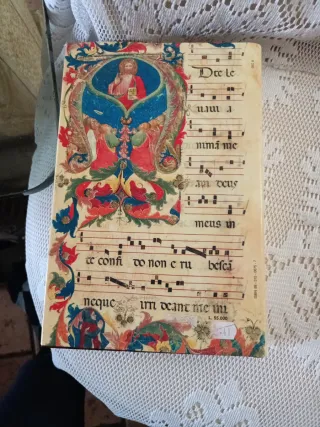 D te le
uaui a
nimā me
am deus
meus in
te confi do non e ru besca
neque irri deant me ini
L. 85.000